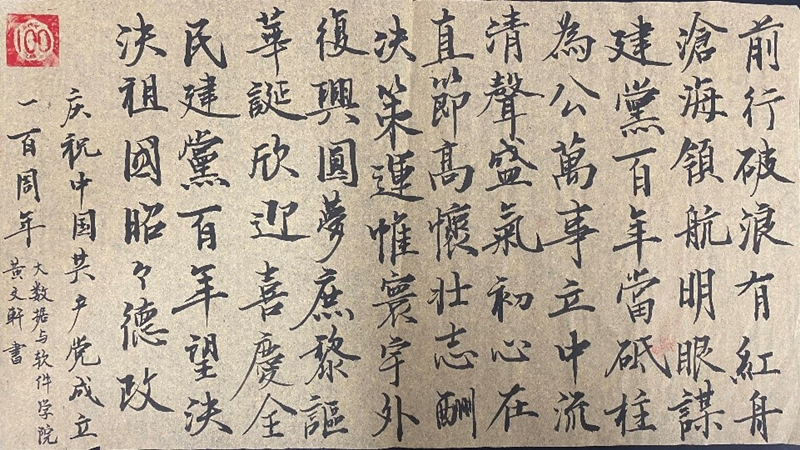 前行破浪有紅舟
滄海領航明眼謀
建黨百年當砥柱
為公萬事立中流
清聲盛氣初心在
直節高懷壯志酬
決策運惟寰宇外
復興圓夢庶黎謳
華誕欣迎喜慶全
民建黨百年望泱
泱祖國昭々德政
庆祝中国共产党成立
一百周年
大数据与软件学院
黄文軒書
100